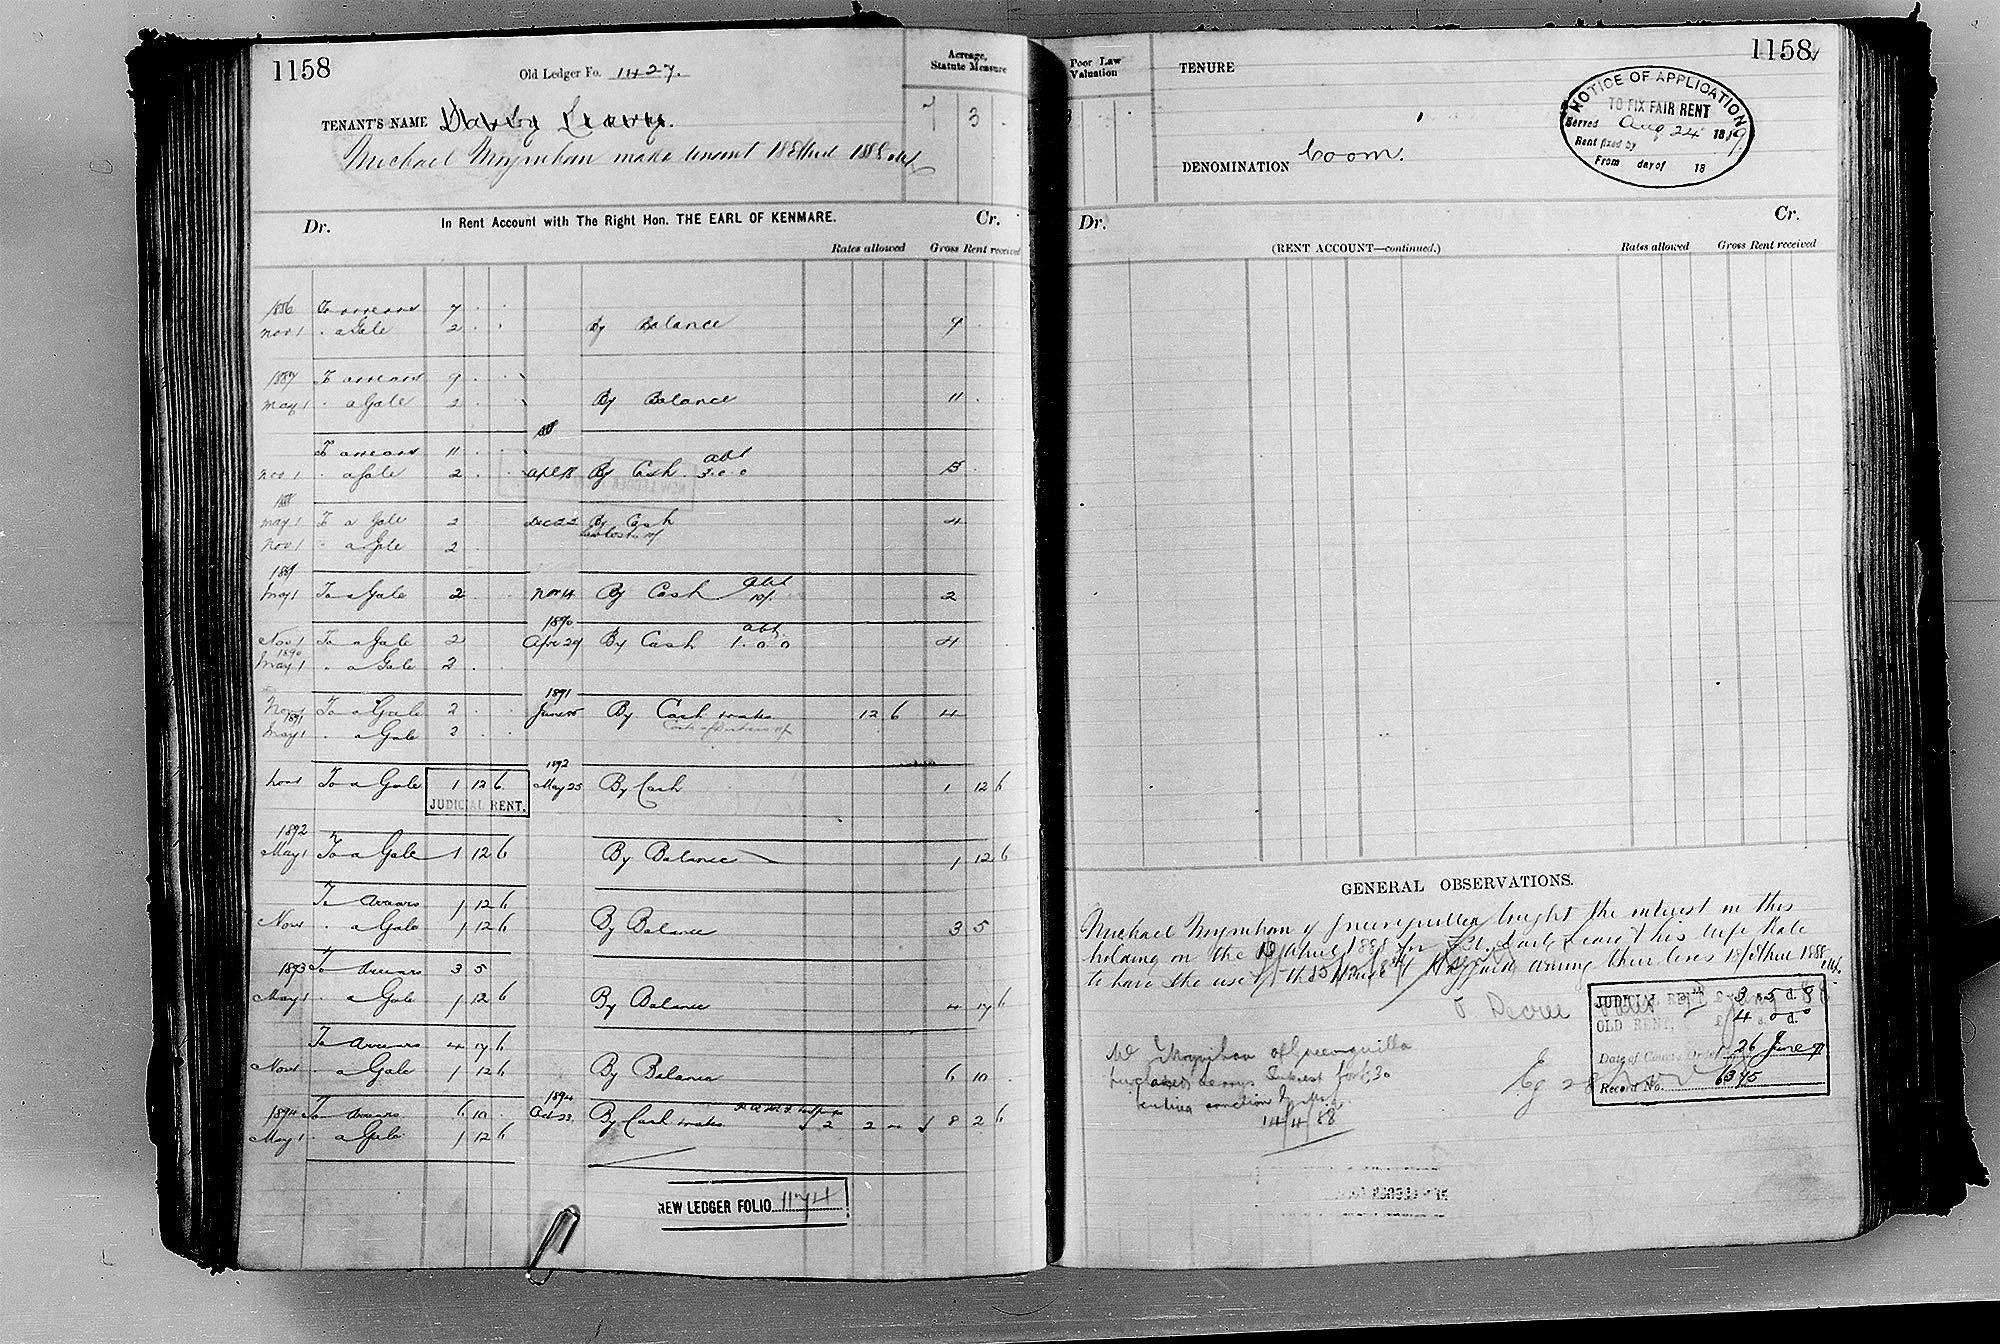 1158
Old Ledger Fo. 1427.
Acreage, Statute Measure
TENANT'S NAME Darby Leary.
7 3
Michael Moynihan made tenant 1888
Dr. In Rent Account with The Right Hon. THE EARL OF KENMARE. Cr.
Rates allowed Gross Rent received
1886 To arrears 7 . .
Nov 1 . a Gale 2 . . By Balance 9 .
1887 To arrears 9 . .
May 1 . a Gale 2 . . By Balance 11 .
To arrears 11 . . abt
Nov 1 . a Gale 2 . . Apl 18 By Cash 3.0.0
1888
May 1 To a Gale 2 . Dec 22 By Cash 4
Nov 1 " a Gale 2 .
1889
May 1 To a Gale 2 Nov 14 By Cash abt 10/. 2
1890
Nov 1 To a Gale 2 Apr 29 By Cash abt 1.0.0 4
1890
May 1 . a Gale 2 .
1891
Nov 1 To a Gale 2 . . June By Cash & rates 12 6 4
1891
May 1 . a Gale 2 . .
1892
Nov 1 To a Gale 1 12 6 May 25 By Cash 1 12 6
JUDICIAL RENT.
1892
May 1 To a Gale 1 12 6 By Balance 1 12 6
To Arrears 1 12 6
Nov 1 . a Gale 1 12 6 By Balance 3 5
1893 To Arrears 3 5
May 1 . a Gale 1 12 6 By Balance 4 17 6
To Arrears 4 17 6
Nov 1 . a Gale 1 12 6 By Balance 6 10 .
1894
1894 To Arrears 6 10 . Oct 23 By Cash & rates 2 2 8 2 6
May 1 . a Gale 1 12 6
NEW LEDGER FOLIO 1174
1158
Poor Law Valuation
TENURE
NOTICE OF APPLICATION
TO FIX FAIR RENT
Served Aug 24 18
Rent fixed by
From day of 18
DENOMINATION Coom.
Dr. Cr.
(RENT ACCOUNT—continued.) Rates allowed Gross Rent received
GENERAL OBSERVATIONS.
Michael Moynihan of Gneeveguilla bought the interest in this
holding on the April 1888 for & his wife Kate
to have the use of the of during their lives 1888
Decree
JUDICIAL RENT, £ 3 s. 5 d.
OLD RENT, £ 4 s. 0 d. 0
Date of Court Order 26 June 91
Record No. 6345
Moynihan of Gneeveguilla
purchased Learys Interest for £30
sanction
14/4/88